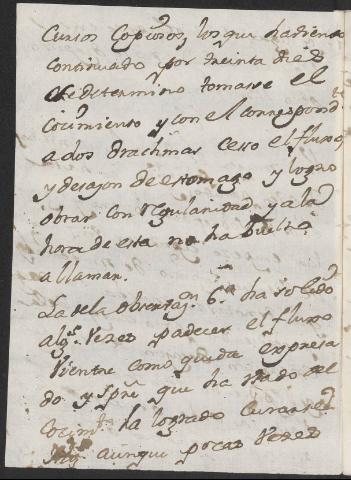 Cursos Copiosos, los que haviendo
continuado por treinta dias
se determino tomasse el
cocimiento y con el correspondte
a dos drachmas ceso el fluxo,
y desazon de estomago y logro
obrar con regularidad y a la
hora de esta no ha buelto
a llamar.
La de la obserbazn 6a ha solido
algs vezes padecer el fluxo
vientre como queda expresa
do y spre qe ha usado del
cocimto ha logrado curarse
aunque pocas vezes